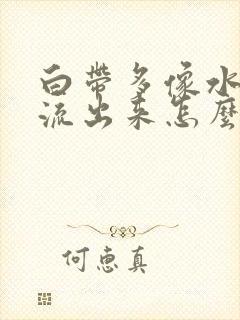 白帶多像水
流出来怎麼
何惠真